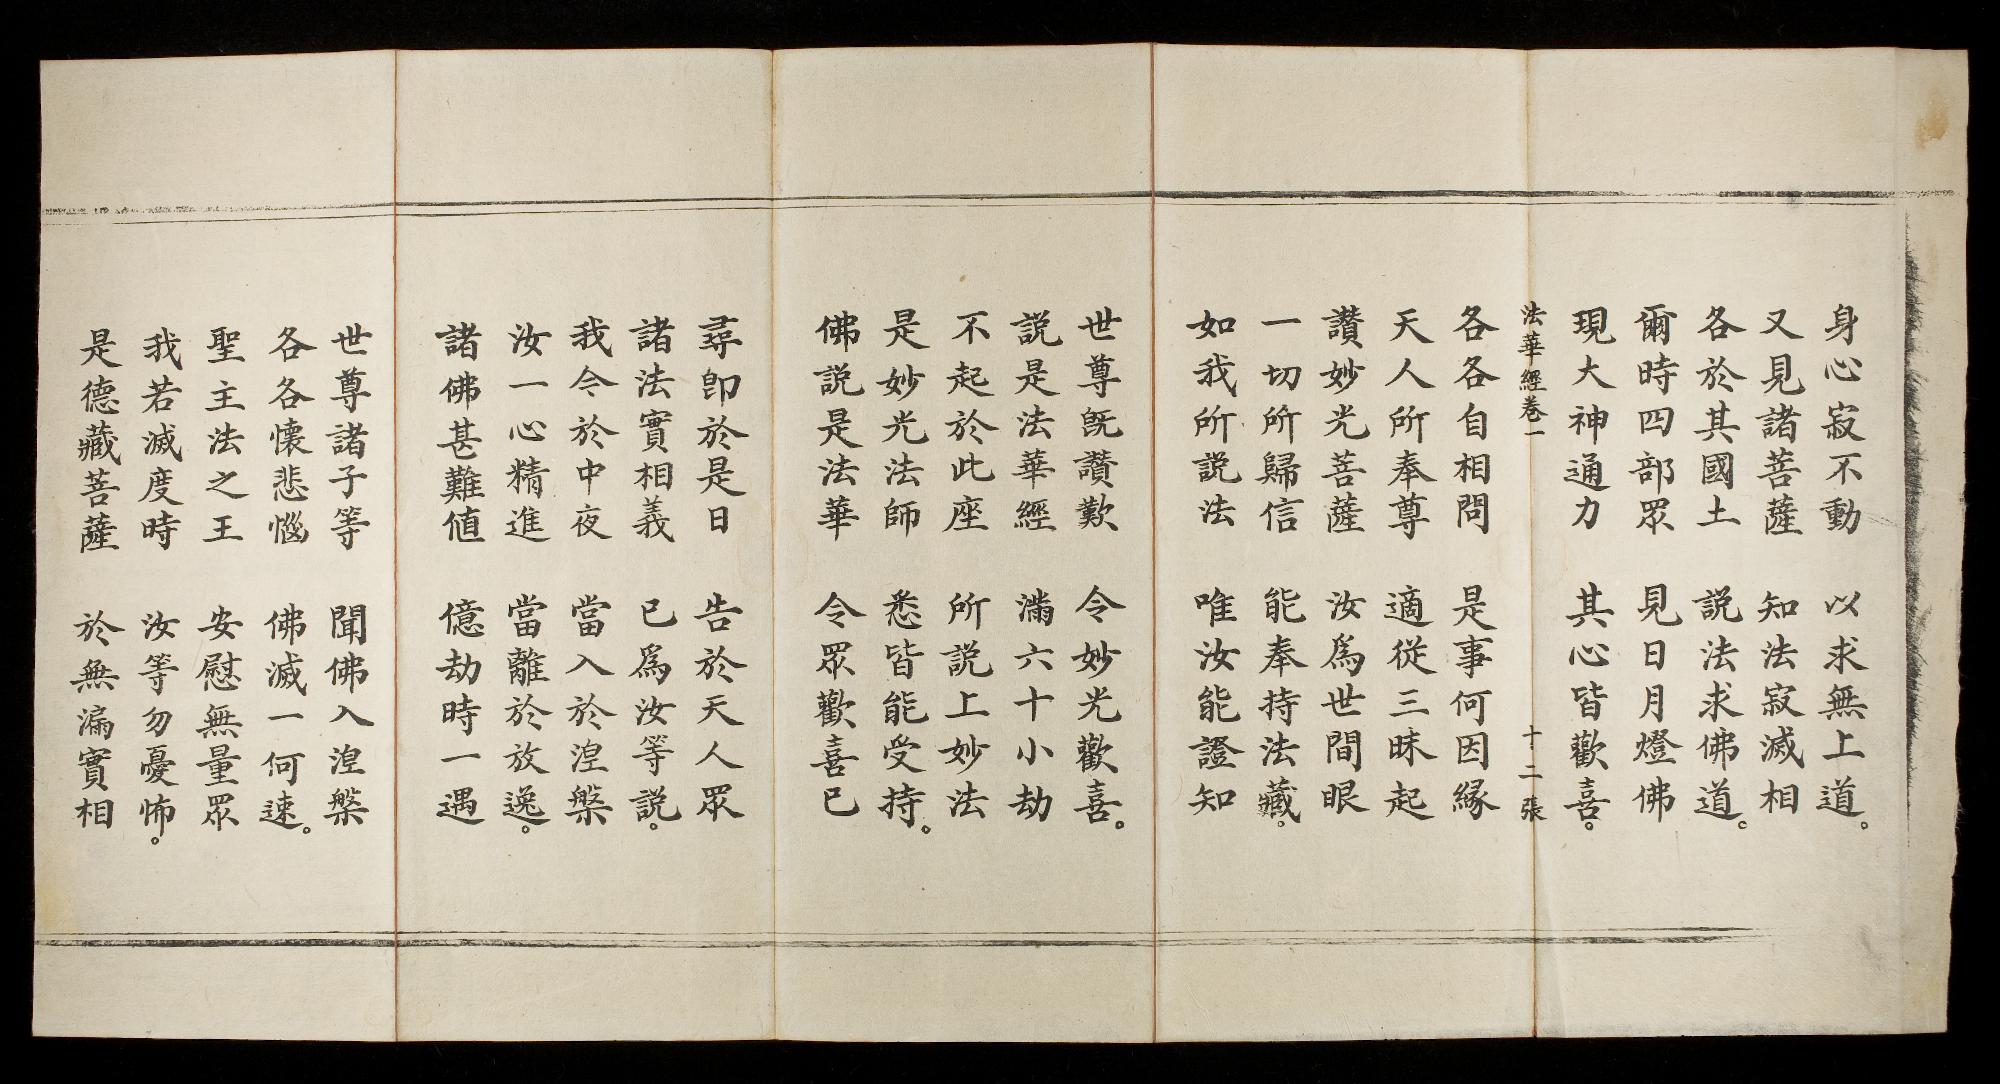 身心寂不動　以求無上道。
又見諸菩薩　知法寂滅相
各於其國土　説法求佛道。
爾時四部眾　見日月燈佛
現大神通力　其心皆歡喜。
法華經卷一　十二張
各各自相問　是事何因緣
天人所奉尊　適從三昧起
讚妙光菩薩　汝為世間眼
一切所歸信　能奉持法藏。
如我所説法　唯汝能證知
世尊既讚歎　令妙光歡喜。
説是法華經　滿六十小劫
不起於此座　所説上妙法
是妙光法師　悉皆能受持。
佛説是法華　令眾歡喜已
尋即於是日　告於天人眾
諸法實相義　已為汝等説。
我今於中夜　當入於涅槃
汝一心精進　當離於放逸。
諸佛甚難值　億劫時一遇
世尊諸子等　聞佛入涅槃
各各懷悲惱　佛滅一何速。
聖主法之王　安慰無量眾
我若滅度時　汝等勿憂怖。
是德藏菩薩　於無漏實相